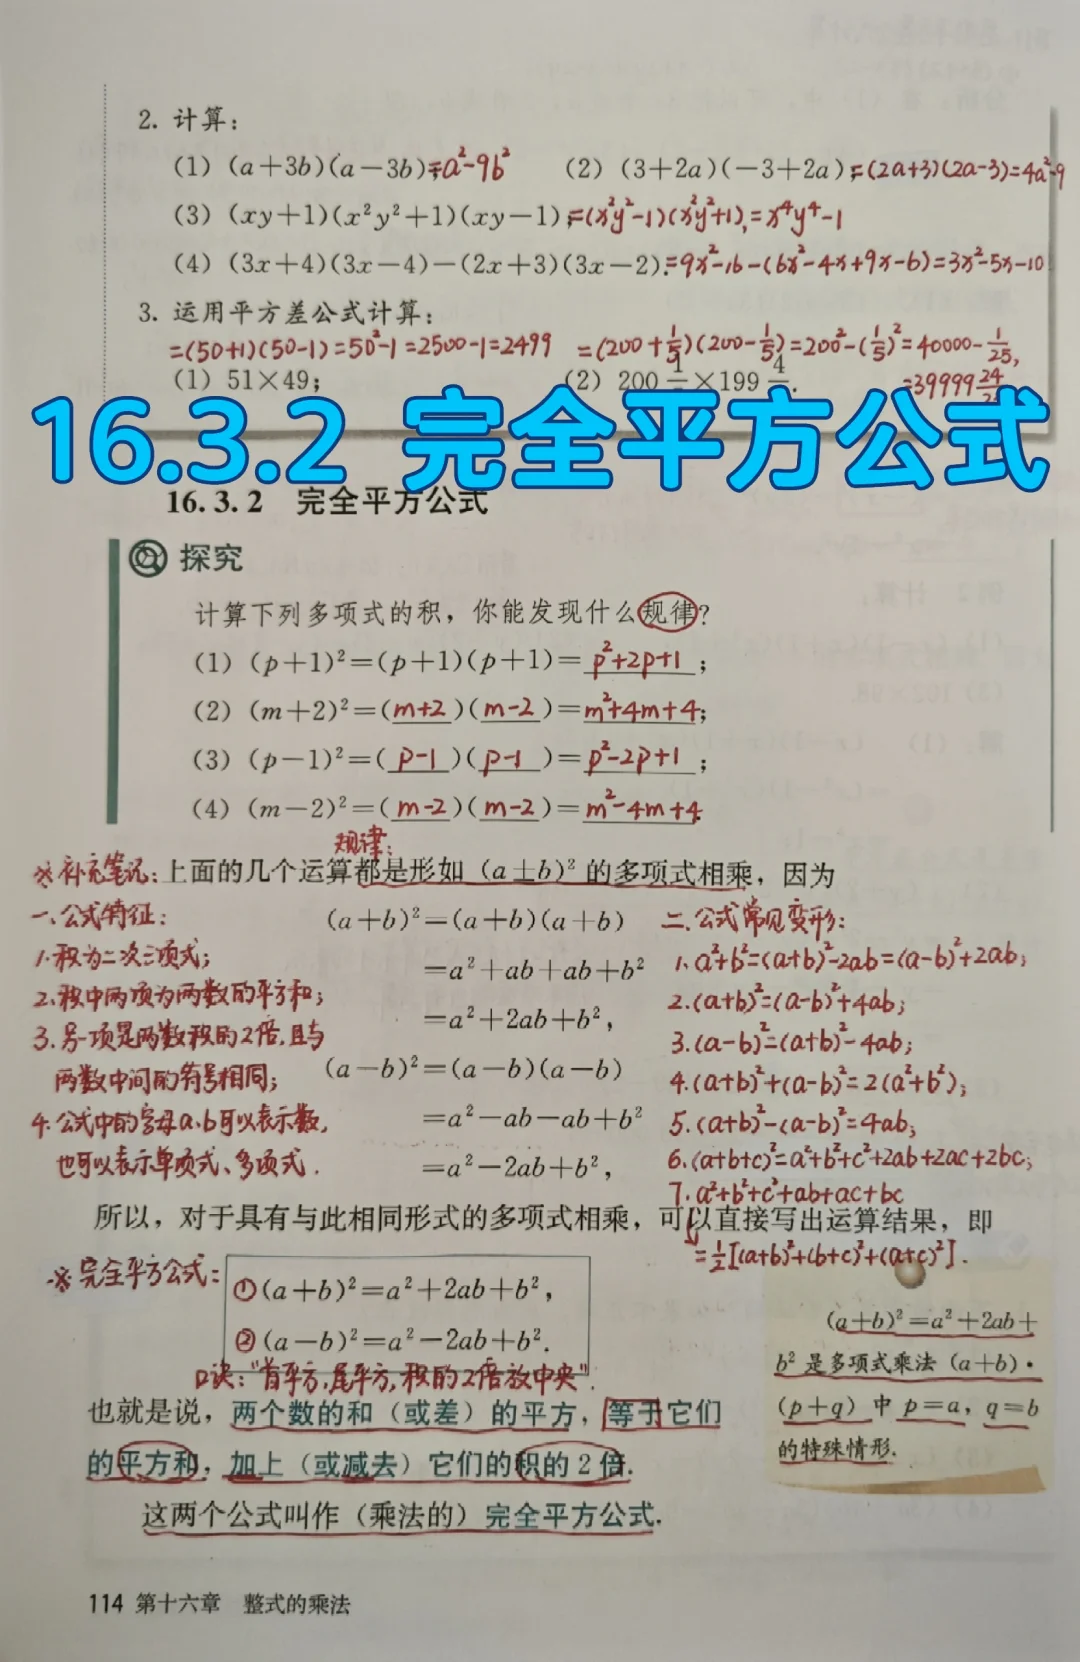 2. 计算:
(1) (a+3b)(a-3)b);=a²-9b²  (2) (3+2a)(-3+2a);=(2a+3)(2a-3)=4a²-9
(3) (xy+1)(x²y²+1)(xy-1);=(x²y²-1)(x²y²+1)=x⁴y⁴-1
(4) (3x+4)(3x-4)-(2x+3)(3x-2).=9x²-16-(6x²-4x+9x-6)=3x²-5x-10
3. 运用平方差公式计算:
=(50+1)(50-1)=50²-1=2500-1=2499  =(200+1/5)(200-1/5)=200²-(1/5)²=40000-1/25,
(1) 51×49;  (2) 200 1 ×199 4 .  =39999 24
16.3.2 完全平方公式
16.3.2 完全平方公式
探究
计算下列多项式的积，你能发现什么规律?
(1) (p+1)²=(p+1)(p+1)=p²+2p+1;
(2) (m+2)²=(m+2)(m-2)=m²+4m+4;
(3) (p-1)²=(p-1)(p-1)=p²-2p+1;
(4) (m-2)²=(m-2)(m-2)=m²-4m+4.
规律:
※补充笔记:上面的几个运算都是形如 (a±b)² 的多项式相乘，因为
一、公式特征:
1.积为二次三项式;
2.积中两项为两数的平方和;
3.另一项是两数积的2倍,且与
两数中间的符号相同;
4.公式中的字母a、b可以表示数,
也可以表示单项式、多项式.
(a+b)²=(a+b)(a+b)
=a²+ab+ab+b²
=a²+2ab+b²,
(a-b)²=(a-b)(a-b)
=a²-ab-ab+b²
=a²-2ab+b²,
二.公式常见变形:
1.a²+b²=(a+b)²-2ab=(a-b)²+2ab;
2.(a+b)²=(a-b)²+4ab;
3.(a-b)²=(a+b)²-4ab;
4.(a+b)²+(a-b)²=2(a²+b²);
5.(a+b)²-(a-b)²=4ab;
6.(a+b+c)²=a²+b²+c²+2ab+2ac+2bc;
7.a²+b²+c²+ab+ac+bc
=½[(a+b)²+(b+c)²+(a+c)²].
所以，对于具有与此相同形式的多项式相乘，可以直接写出运算结果，即
※完全平方公式:
①(a+b)²=a²+2ab+b²,
②(a-b)²=a²-2ab+b².
口诀:"首平方,尾平方,积的2倍放中央".
(a+b)²=a²+2ab+
b² 是多项式乘法 (a+b)·
(p+q) 中 p=a, q=b
的特殊情形.
也就是说，两个数的和（或差）的平方，等于它们
的平方和，加上（或减去）它们的积的 2 倍.
这两个公式叫作（乘法的）完全平方公式.
114 第十六章 整式的乘法